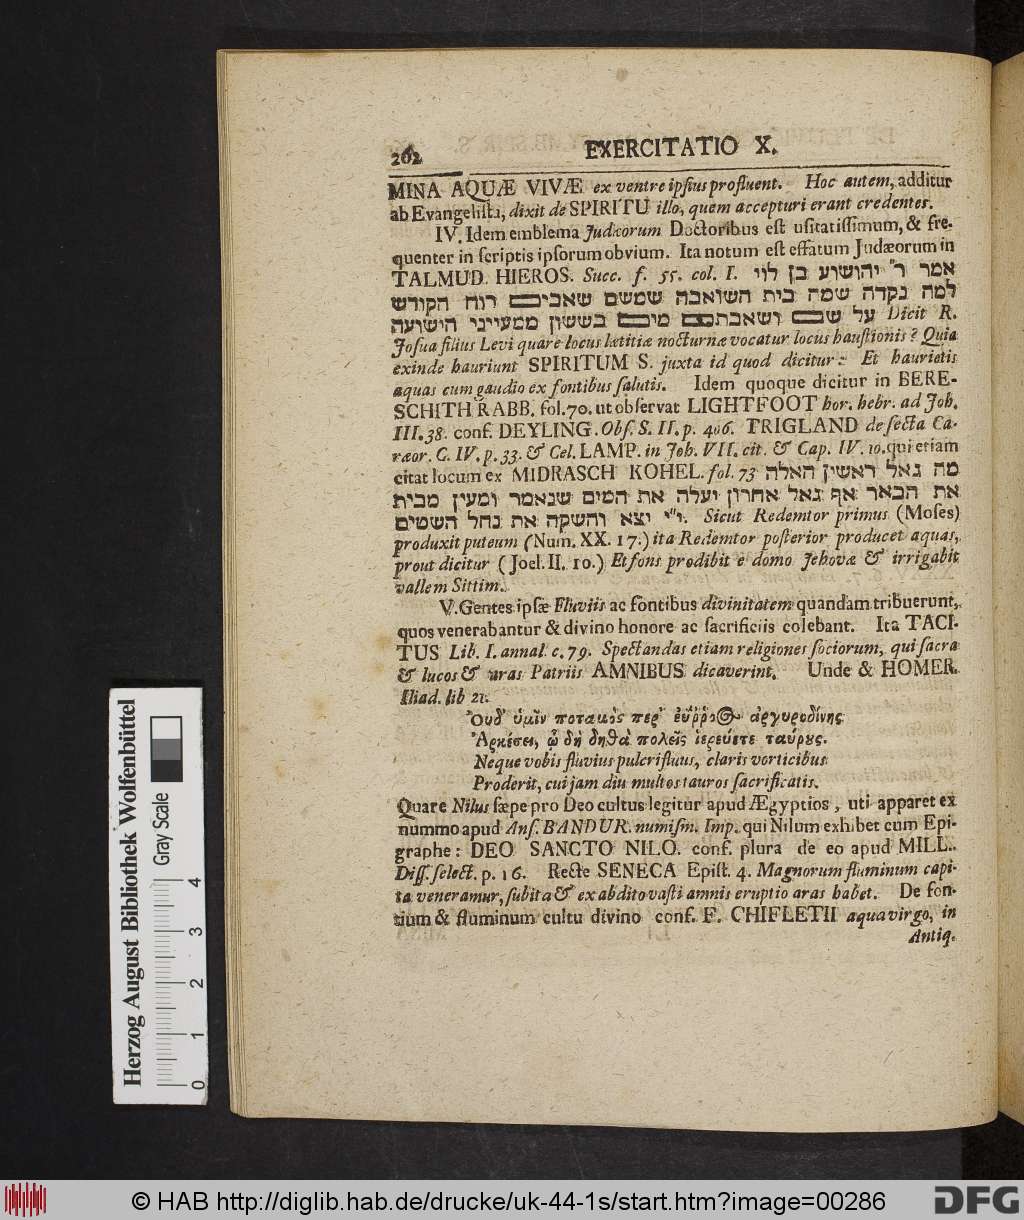 262 EXERCITATIO X.
MINA AQUÆ VIVÆ ex ventre ipsius profluent. Hoc autem, additur
ab Evangelista, dixit de SPIRITU illo, quem accepturi erant credentes.
IV. Idem emblema Judæorum Doctoribus est usitatissimum, & fre-
quenter in scriptis ipsorum obvium. Ita notum est effatum Judæorum in
TALMUD. HIEROS. Succ. f. 55. col. I. אמר ר״ יהושוע בן לוי
למה נקדה שמה בית השואבה שמשם שאבים רוח הקודש
על שם ושאבתם מים בששון ממעייני הישועה Dicit R.
Josua filius Levi quare locus lætitiæ nocturnæ vocatur locus haustionis? Quia
exinde hauriunt SPIRITUM S. juxta id quod dicitur: Et haurietis
aquas cum gaudio ex fontibus salutis. Idem quoque dicitur in BERE-
SCHITH RABB. fol. 70. ut observat LIGHTFOOT hor. hebr. ad Joh.
III. 38. conf. DEYLING. Obs. S. II. p. 406. TRIGLAND de secta Ca-
ræor. C. IV. p. 33. & Cel. LAMP. in Joh. VII. cit. & Cap. IV. 10. qui etiam
citat locum ex MIDRASCH KOHEL. fol. 73 מה גאל ראשין האלה
את הבאר אף גאל אחרון יעלה את המים שנאמר ומעין מבית
י״י יצא והשקה את נחל השטים. Sicut Redemtor primus (Moses)
produxit puteum (Num. XX. 17.) ita Redemtor posterior producet aquas,
prout dicitur (Joel. II. 10.) Et fons prodibit e domo Jehovæ & irrigabit
vallem Sittim.
V. Gentes ipsæ Fluviis ac fontibus divinitatem quandam tribuerunt,
quos venerabantur & divino honore ac sacrificiis colebant. Ita TACI-
TUS Lib. I. annal. c. 79. Spectandas etiam religiones sociorum, qui sacra
& lucos & aras Patriis AMNIBUS dicaverint. Unde & HOMER.
Iliad. lib 21.
Ὀυδ᾽ ὑμῖν ποταμός περ᾽ ἐΰῤῥοος ἀργυροδίνης
Ἀρκέσει, ᾧ δὴ δηθὰ πολεῖς ἱερεύετε ταύρους.
Neque vobis fluvius pulcrifluus, claris vorticibus
Proderit, cui jam diu multos tauros sacrificatis.
Quare Nilus sæpe pro Deo cultus legitur apud Ægyptios, uti apparet ex
nummo apud Ans. BANDUR. numism. Imp. qui Nilum exhibet cum Epi-
graphe: DEO SANCTO NILO. conf. plura de eo apud MILL.
Diss. select. p. 16. Recte SENECA Epist. 4. Magnorum fluminum capi-
ta veneramur, subita & ex abdito vasti amnis eruptio aras habet. De fon-
tium & fluminum cultu divino conf. F. CHIFLETII aqua virgo, in
Antiq.
Herzog August Bibliothek Wolfenbüttel
Gray Scale
0 1 2 3 4
© HAB http://diglib.hab.de/drucke/uk-44-1s/start.htm?image=00286
DFG